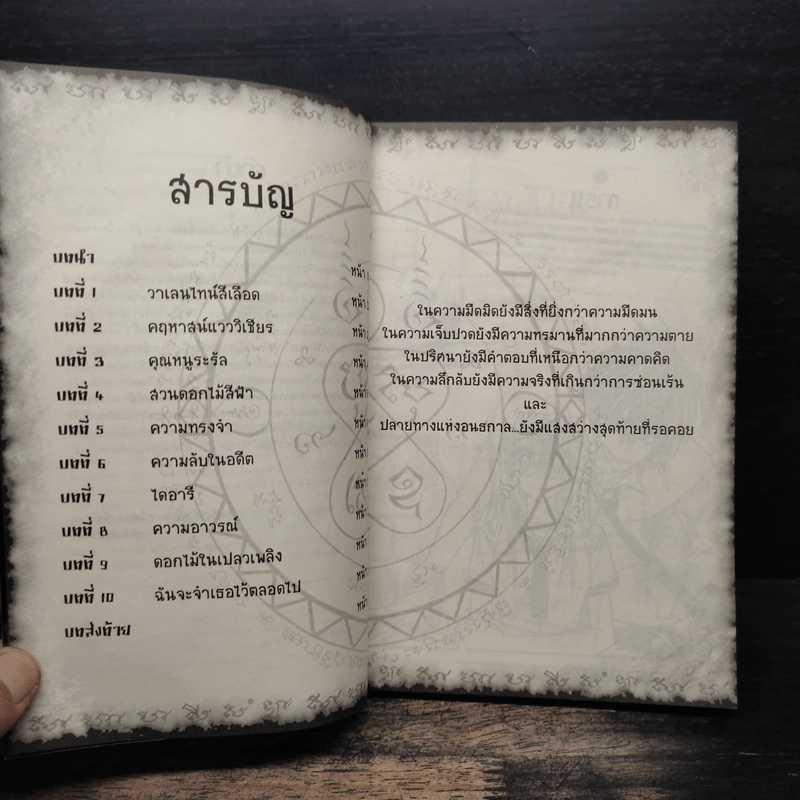 สารบัญ
บทนำ หน้า
บทที่ 1 วาเลนไทน์สีเลือด หน้า
บทที่ 2 คฤหาสน์แววิเชียร หน้า
บทที่ 3 คุณหนูระรัล หน้า
บทที่ 4 สวนดอกไม้สีฟ้า หน้า
บทที่ 5 ความทรงจำ หน้า
บทที่ 6 ความลับในอดีต หน้า
บทที่ 7 ไดอารี หน้า
บทที่ 8 ความอาวรณ์ หน้า
บทที่ 9 ดอกไม้ในเปลวเพลิง หน้า
บทที่ 10 ฉันจะจำเธอไว้ตลอดไป หน้า
บทส่งท้าย หน้า
ในความมืดมิดยังมีสิ่งที่ยิ่งกว่าความมืดมน
ในความเจ็บปวดยังมีความทรมานที่มากกว่าความตาย
ในปริศนายังมีคำตอบที่เหนือกว่าความคาดคิด
ในความลึกลับยังมีความจริงที่เกินกว่าการซ่อนเร้น
และ
ปลายทางแห่งอนธกาล...ยังมีแสงสว่างสุดท้ายที่รอคอย